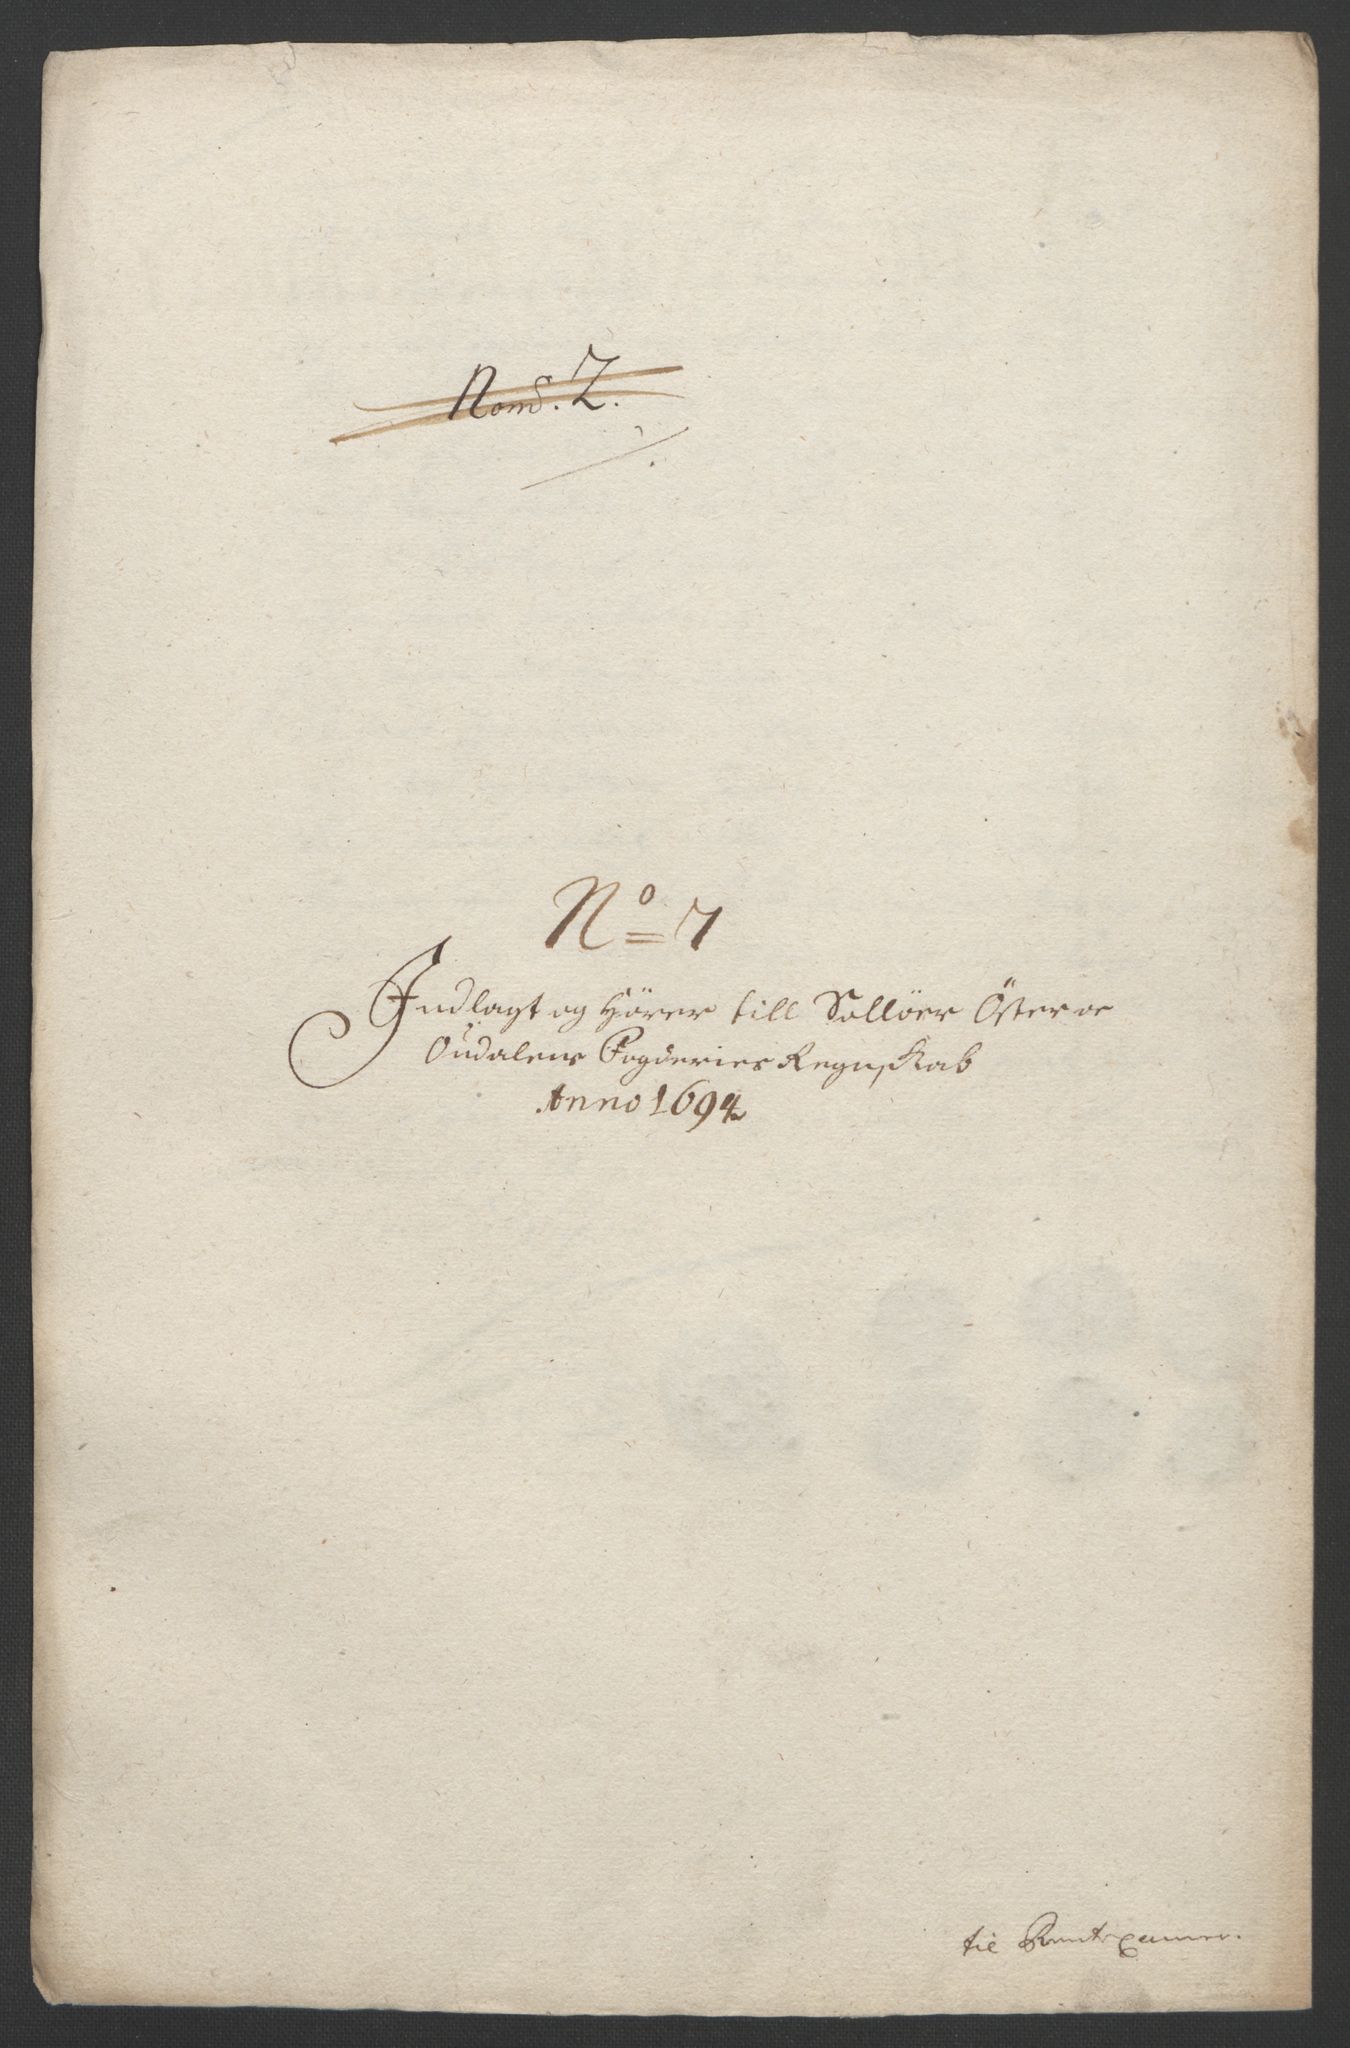 Nom̄. 2.
No 7
Indlagt og Hörer till Sollöer Öster oc
Oudalens Fogderies Regnskab
Anno 1694
til Rentecamer.